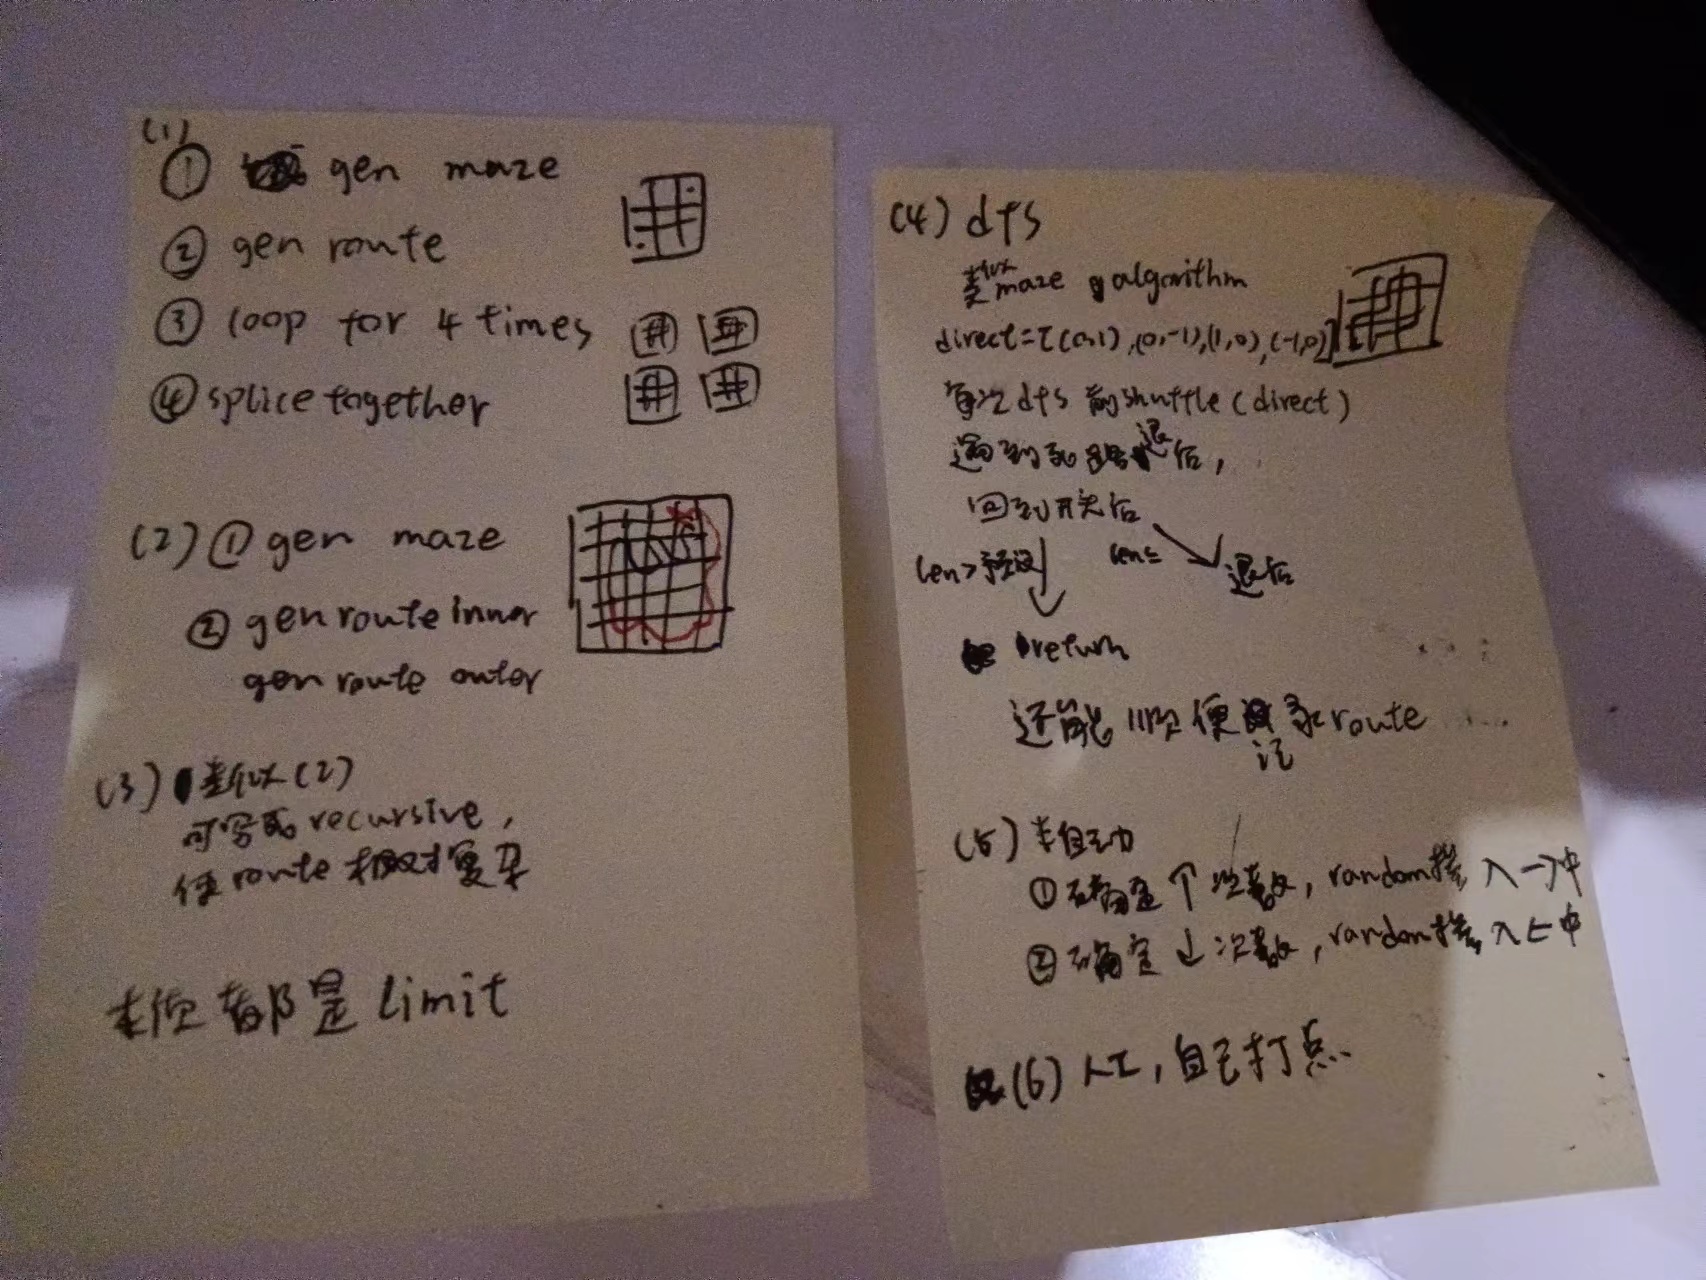 (1)
① gen maze
② gen route
③ loop for 4 times
④ splice together
(2) ① gen maze
② gen route inner
gen route outer
(3) 类似(2)
可写成 recursive,
使 route 相对复杂
都是 limit
(4) dfs
类似 maze algorithm
direct=[(0,1),(0,-1),(1,0),(-1,0)]
每次 dfs 前 shuffle(direct)
遇到死路退后,
回到开头后
len>预设
len≤
退后
return
还能顺便记录 route
(5) 半自动
① 确定 ↑ 次数, random 插入 → 中
② 确定 ↓ 次数, random 插入 ← 中
(6) 人工, 自己打点